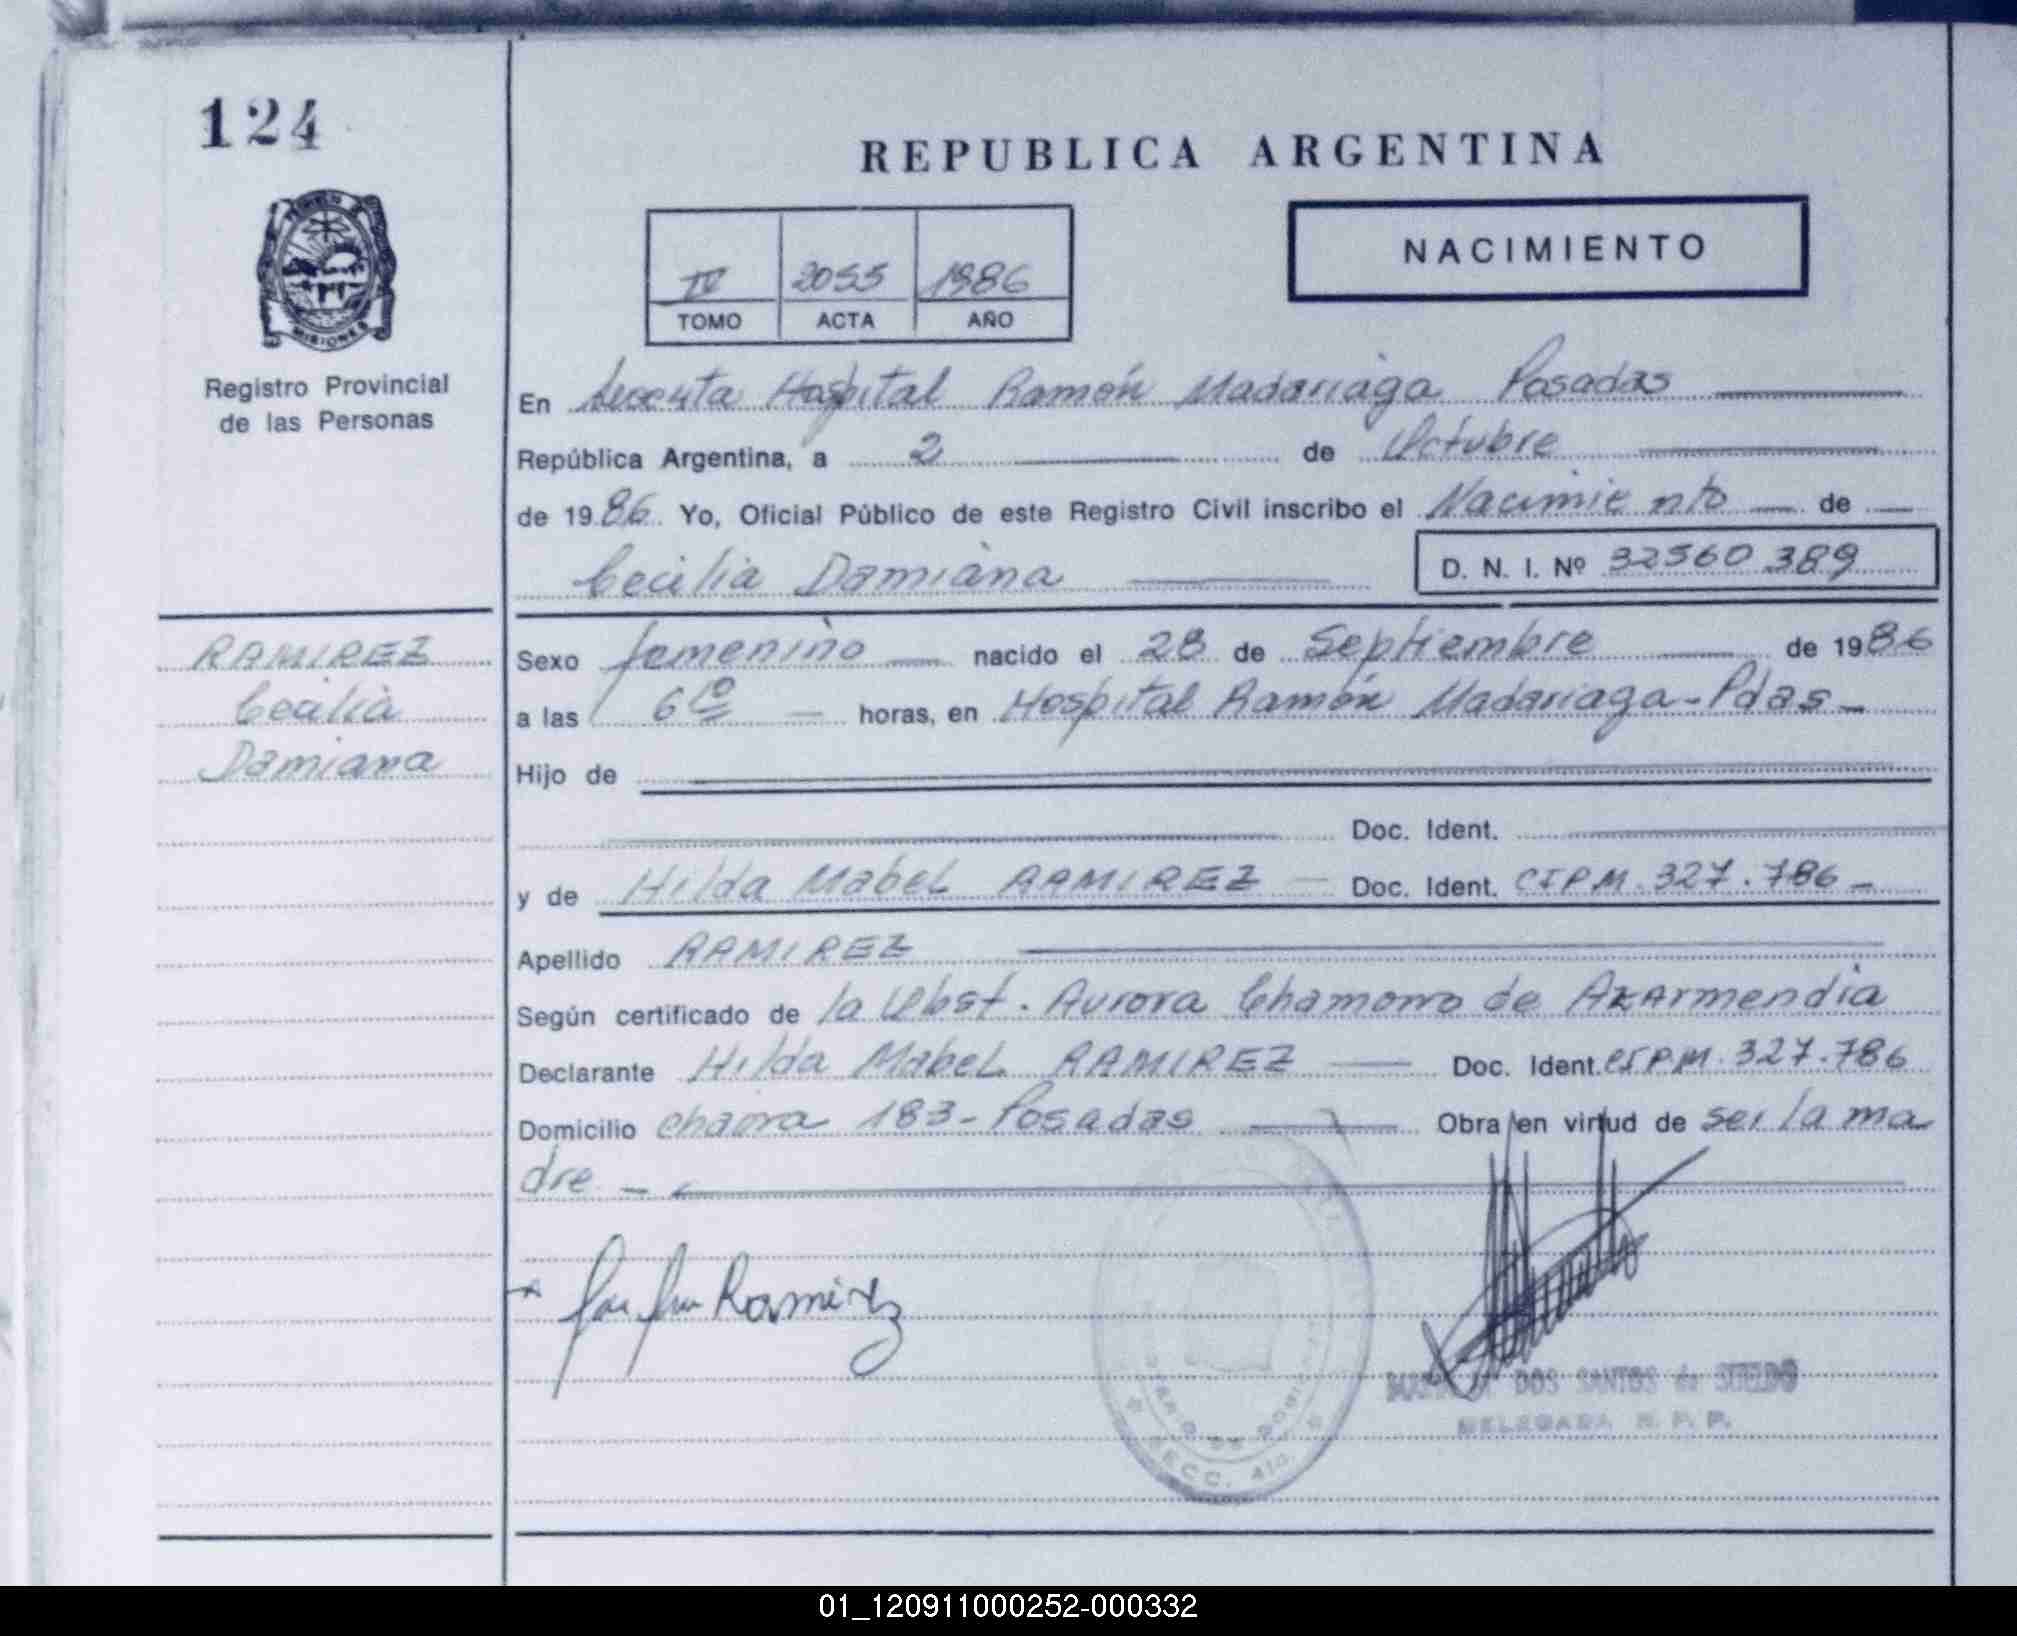 124
REPUBLICA ARGENTINA
NACIMIENTO
IV 2055 1986
TOMO ACTA AÑO
MISIONES
Registro Provincial
de las Personas
En Hospital Ramón Madariaga Posadas
República Argentina, a 2 de Octubre
de 1986. Yo, Oficial Público de este Registro Civil inscribo el Nacimiento de
Cecilia Damiana
D. N. I. Nº 32560.389
RAMIREZ
Cecilia
Damiana
Sexo femenino nacido el 28 de Septiembre de 1986
a las 6 10 horas, en Hospital Ramón Madariaga-Pdas-
Hijo de
Doc. Ident.
y de Hilda Mabel RAMIREZ Doc. Ident. CIPM. 327.786-
Apellido RAMIREZ
Según certificado de la Obst. Aurora Chamorro de Azarmendia
Declarante Hilda Mabel RAMIREZ Doc. Ident. CIPM. 327.786
Domicilio chacra 183-Posadas Obra en virtud de ser la ma
dre -
Ramirez
DOS SANTOS de SUELDO
DELEGADA R. P. P.
SECC. 4ta.
01_120911000252-000332